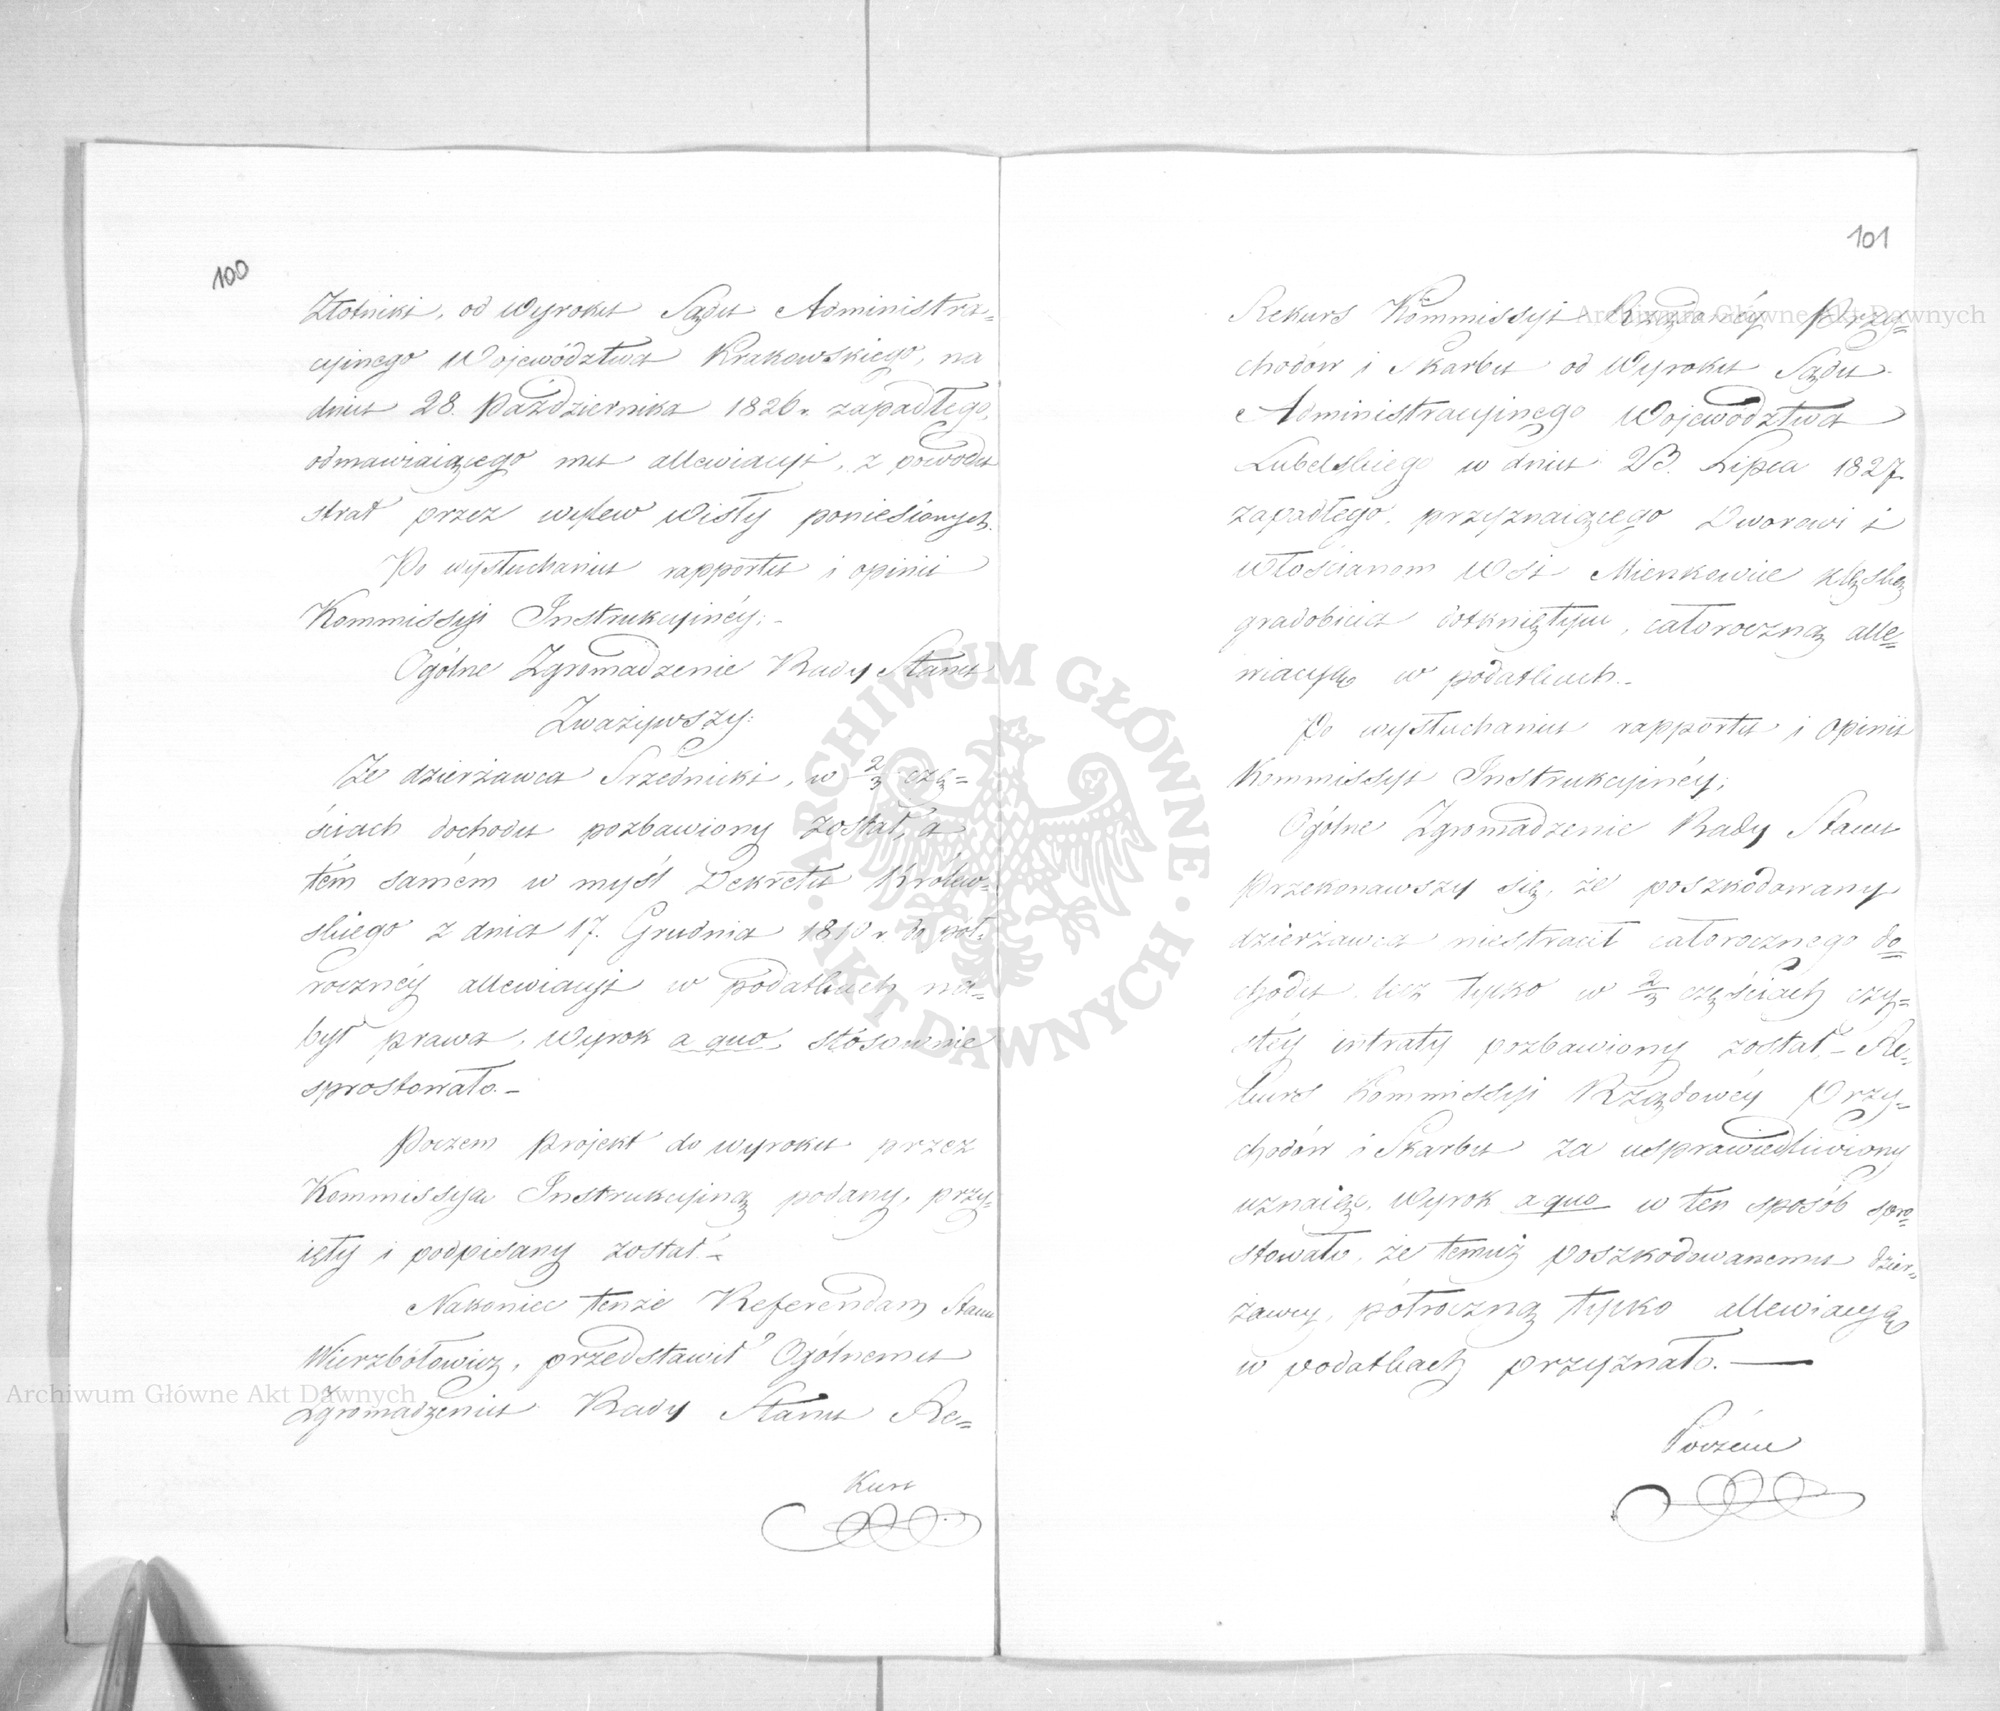 100
Złotniki, od Wyroku Sądu Administra=
cyinego Województwa Krakowskiego, na
dniu 28. Października 1826 r. zapadłego,
odmawiaiącego mu allewiacyi, z powodu
strat przez wylew Wisły poniesionych.
Po wysłuchaniu rapportu i opinii
Kommissyi Instrukcyinéy:-
Ogólne Zgromadzenie Rady Stanu
Zważywszy:
Że dzierżawca Srzednicki, w 2/3 czę=
ściach dochodu pozbawiony został, a
tém samém w myśl Dekretu Królew=
skiego z dnia 17. Grudnia 1810 r. do pół=
rocznéy allewiacyi w podatkach na=
był prawa, Wyrok a quo, stósownie
sprostowało.-
Poczem projekt do wyroku przez
Kommissyą Instrukcyiną podany, przy=
ięty i podpisany został.-
Nakoniec tenże Referendarz Stanu
Wierzbołowicz, przedstawił Ogólnemu
Zgromadzeniu Rady Stanu Re=
Kurs
101
Rekurs Kommissyi Rządowéy Przy=
chodów i Skarbu od Wyroku Sądu
Administracyinego Województwa
Lubelskiego w dniu 23. Lipca 1827.
zapadłego, przyznaiącego Dworowi i
Włościanom Wsi klęską
gradobicia dotkniętym, całoroczną alle=
wiacyą w podatkach.-
Po wysłuchaniu rapportu i Opinii
Kommissyi Instrukcyinéy;
Ogólne Zgromadzenie Rady Stanu
Przekonawszy się, że poszkodowany
dzierżawca niestracił całorocznego do=
chodu lecz tylko w 2/3 częściach czy=
stéy intraty pozbawiony został,- Re=
kurs Kommissyi Rządowéy Przy=
chodów i Skarbu za usprawiedliwiony
uznaiąc, Wyrok a quo w ten sposób spro=
stowało, że temuż poszkodowanemu dzier=
żawcy, półroczną tylko allewiacyą
w podatkach przyznało.-
Poczém
Archiwum Główne Akt Dawnych
Archiwum Główne Akt Dawnych
ARCHIWUM GŁÓWNE · AKT DAWNYCH ·